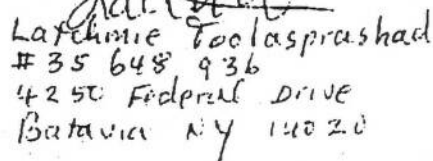 Latchmie Toolasprashad
# 35 648 936
4250 Federal Drive
Batavia NY 14020